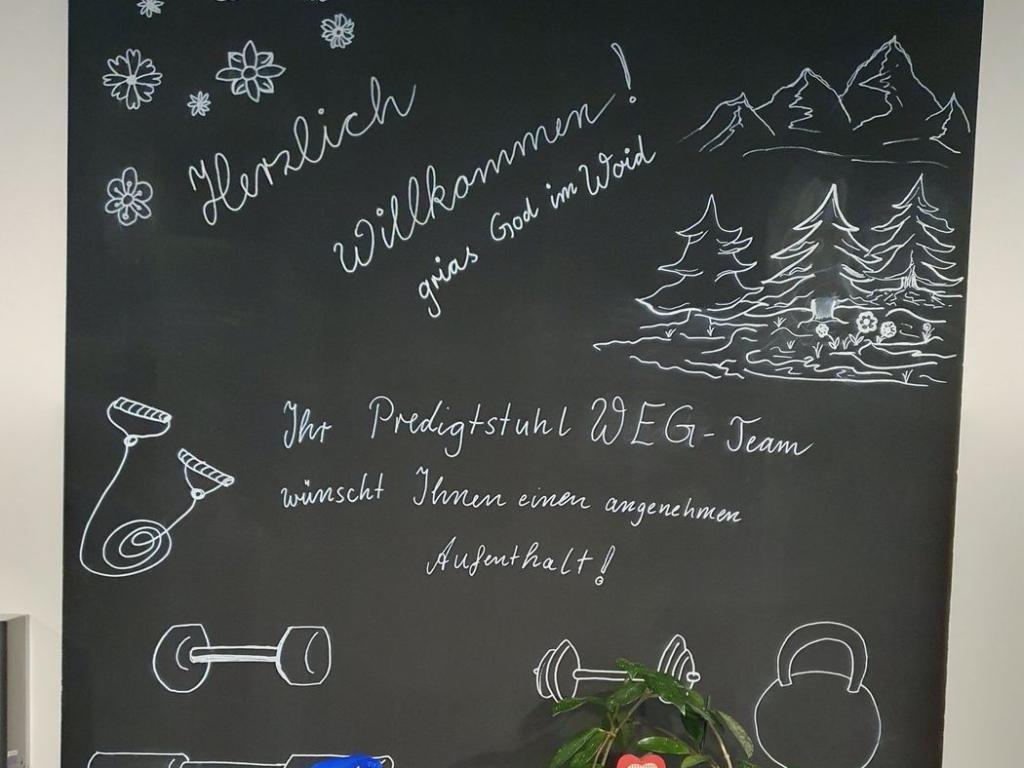 Herzlich
Willkommen!
grias God im Woid
Ihr Predigtstuhl WEG-Team
wünscht Ihnen einen angenehmen
Aufenthalt!